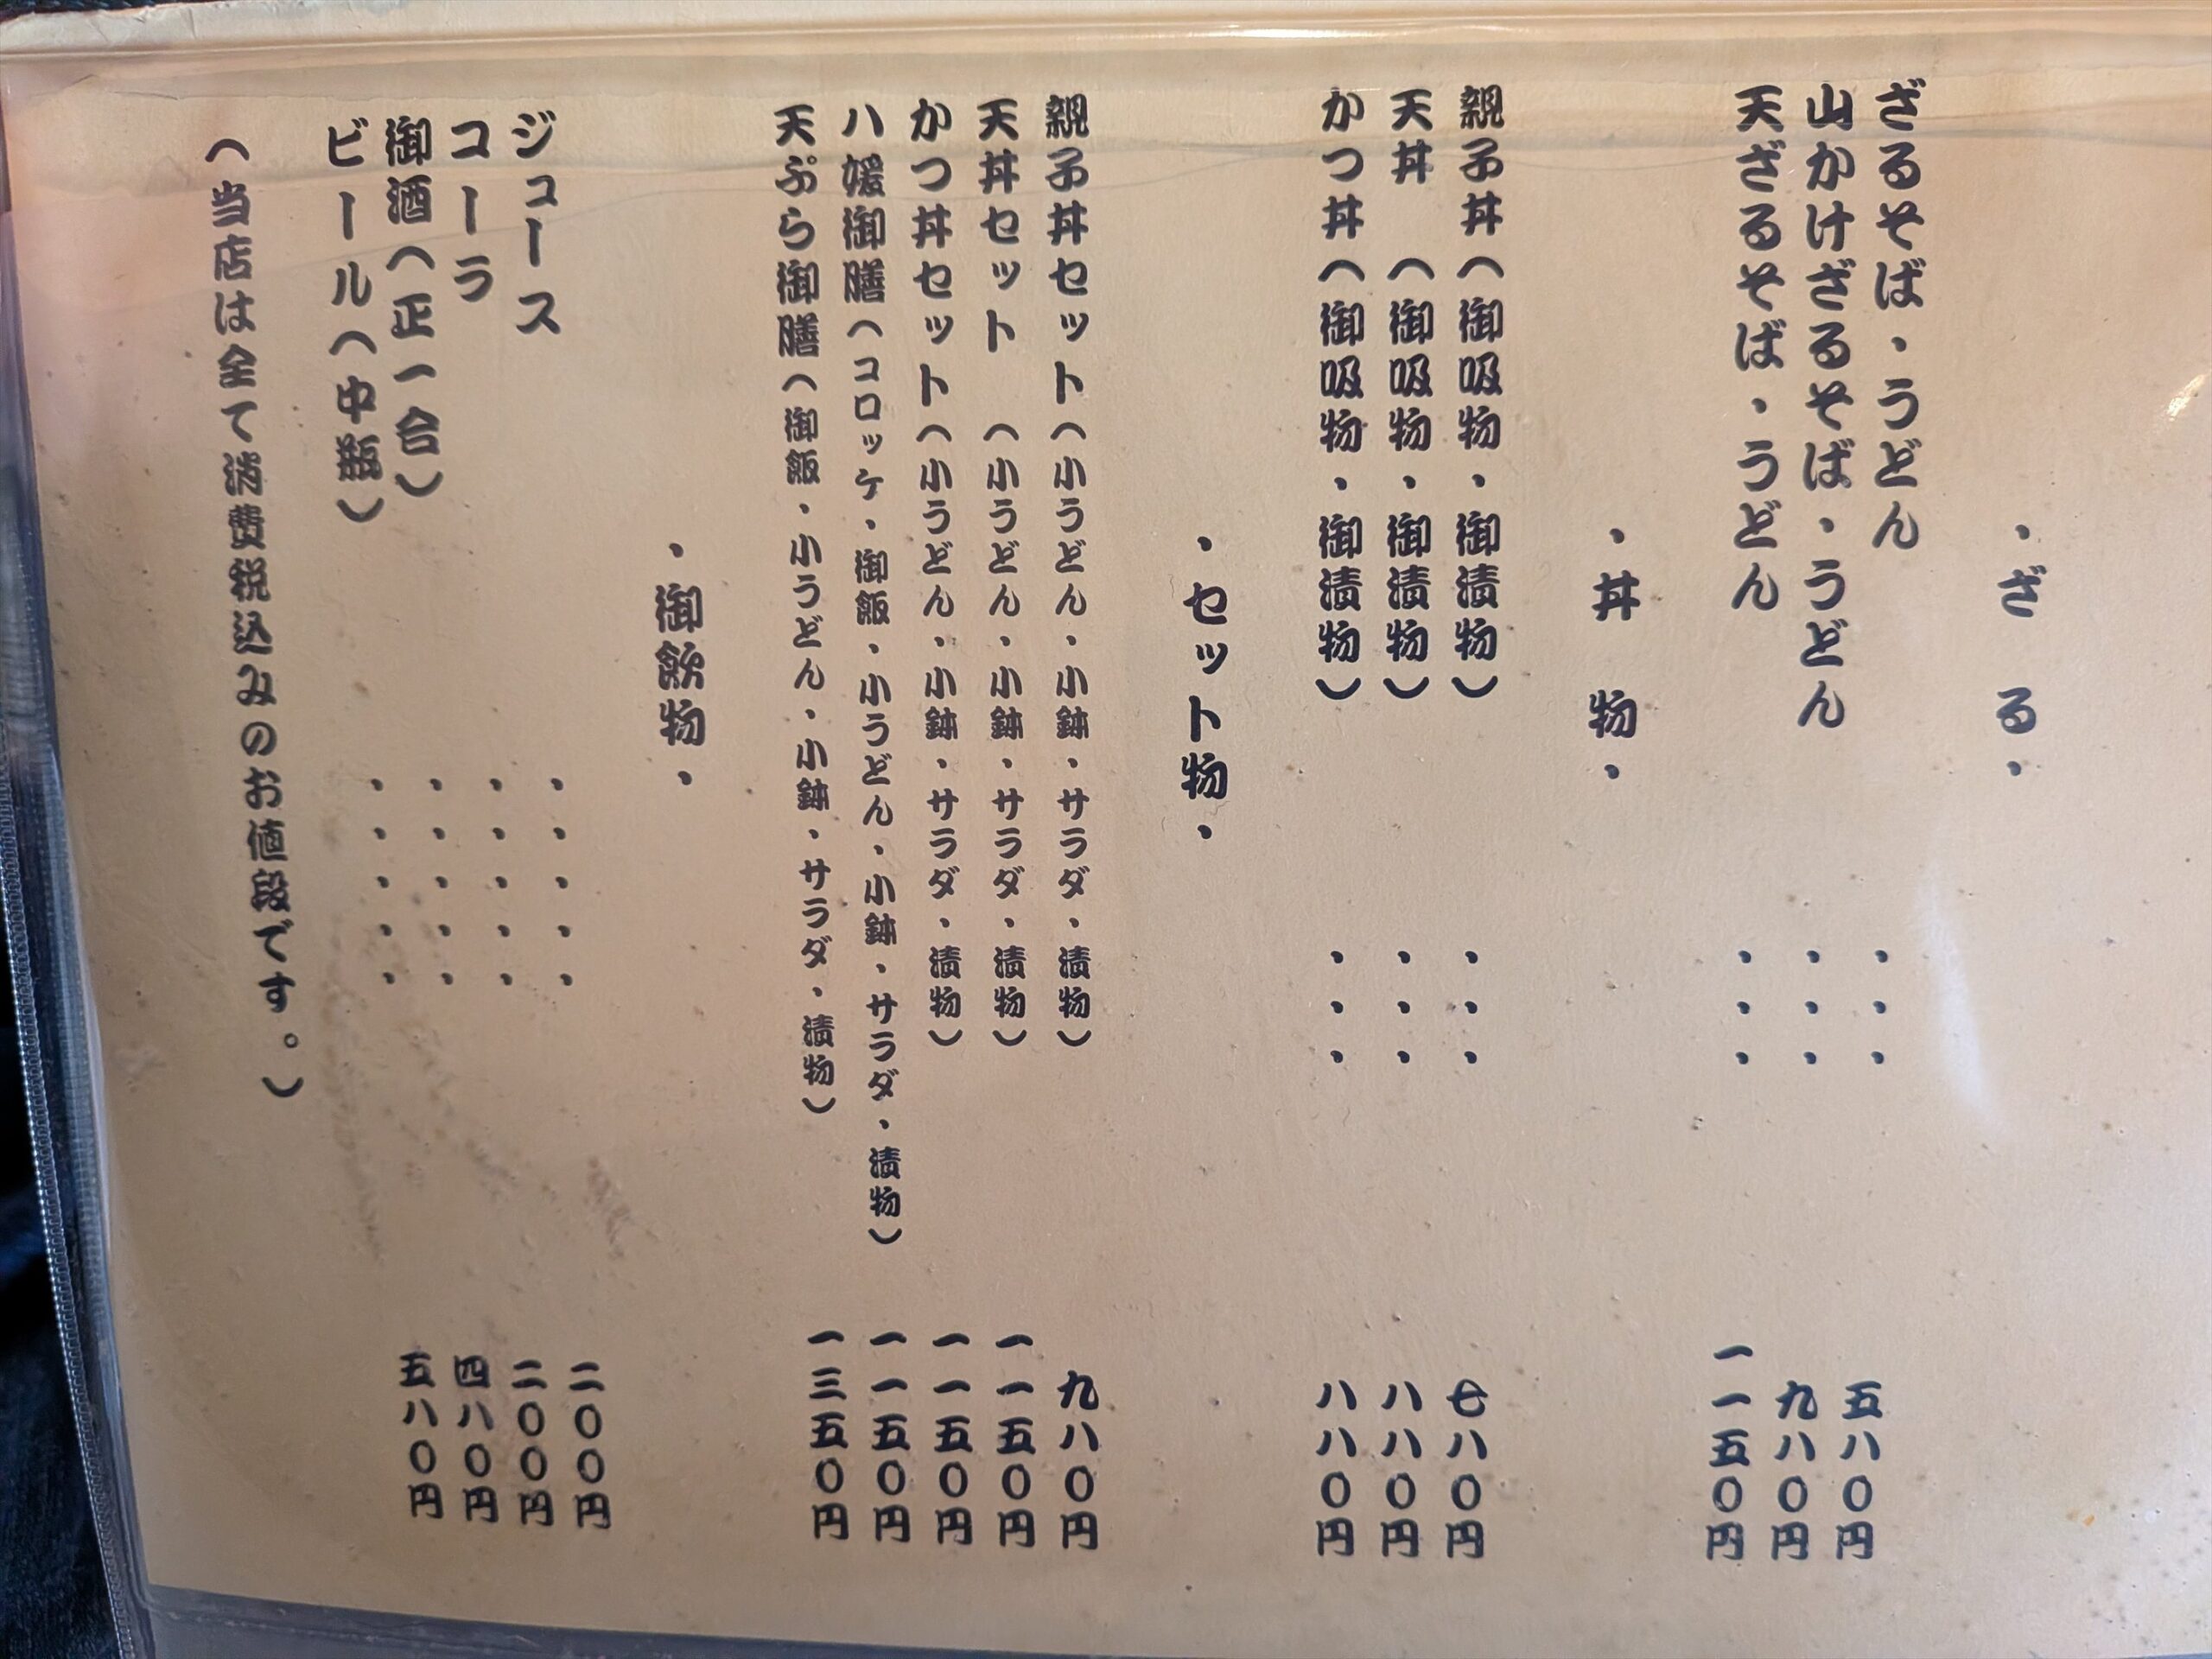 ・ざる・
ざるそば・うどん・・・五八〇円
山かけざるそば・うどん・・・九八〇円
天ざるそば・うどん・・・一一五〇円
・丼物・
親子丼(御吸物・御漬物)・・・七八〇円
天丼(御吸物・御漬物)・・・八八〇円
かつ丼(御吸物・御漬物)・・・八八〇円
・セット物・
親子丼セット(小うどん・小鉢・サラダ・漬物)九八〇円
天丼セット(小うどん・小鉢・サラダ・漬物)一一五〇円
かつ丼セット(小うどん・小鉢・サラダ・漬物)一一五〇円
八媛御膳(コロッケ・御飯・小うどん・小鉢・サラダ・漬物)一一五〇円
天ぷら御膳(御飯・小うどん・小鉢・サラダ・漬物)一三五〇円
・御飲物・
ジュース・・・・・二〇〇円
コーラ・・・・・二〇〇円
御酒(正一合)・・・・・四八〇円
ビール(中瓶)・・・・・五八〇円
(当店は全て消費税込みのお値段です。)